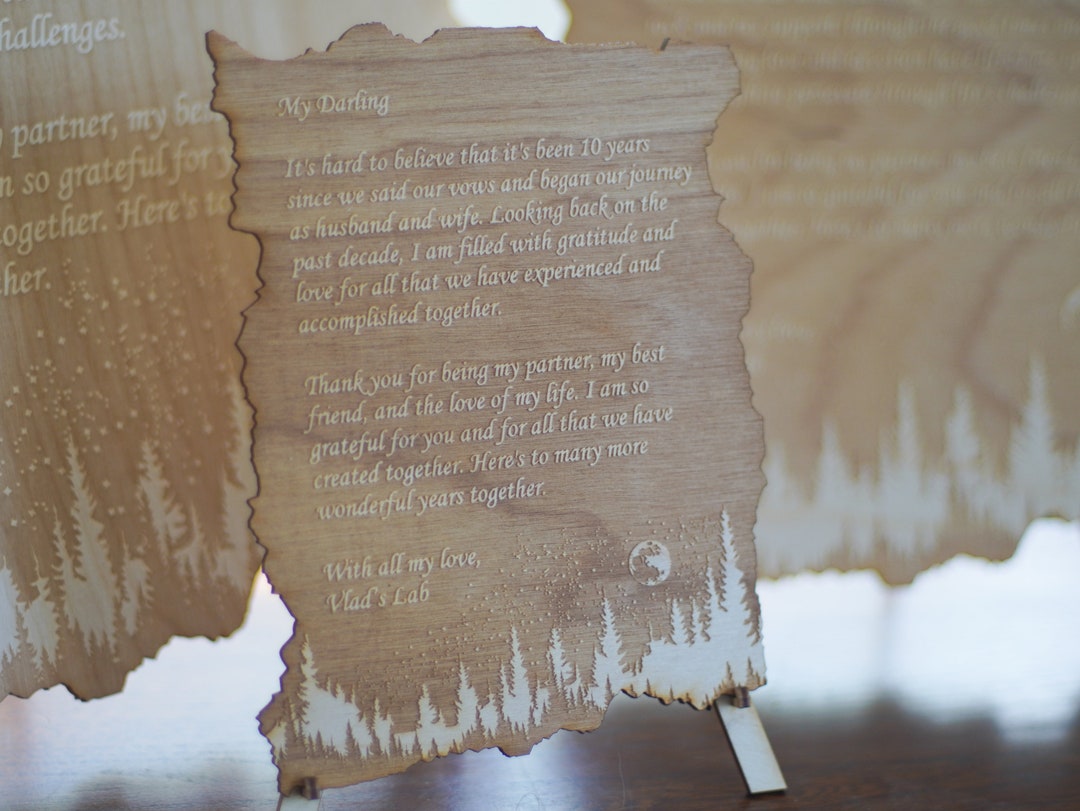 hallenges.
partner, my bes
n so grateful for y
ogether. Here's to
her.
My Darling
It's hard to believe that it's been 10 years
since we said our vows and began our journey
as husband and wife. Looking back on the
past decade, I am filled with gratitude and
love for all that we have experienced and
accomplished together.
Thank you for being my partner, my best
friend, and the love of my life. I am so
grateful for you and for all that we have
created together. Here's to many more
wonderful years together.
With all my love,
Vlad's Lab